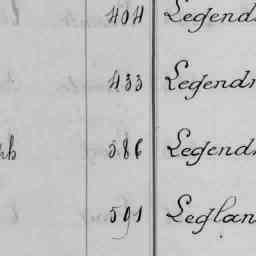 404 Legend
433 Legend
586 Legend
591 Leglan